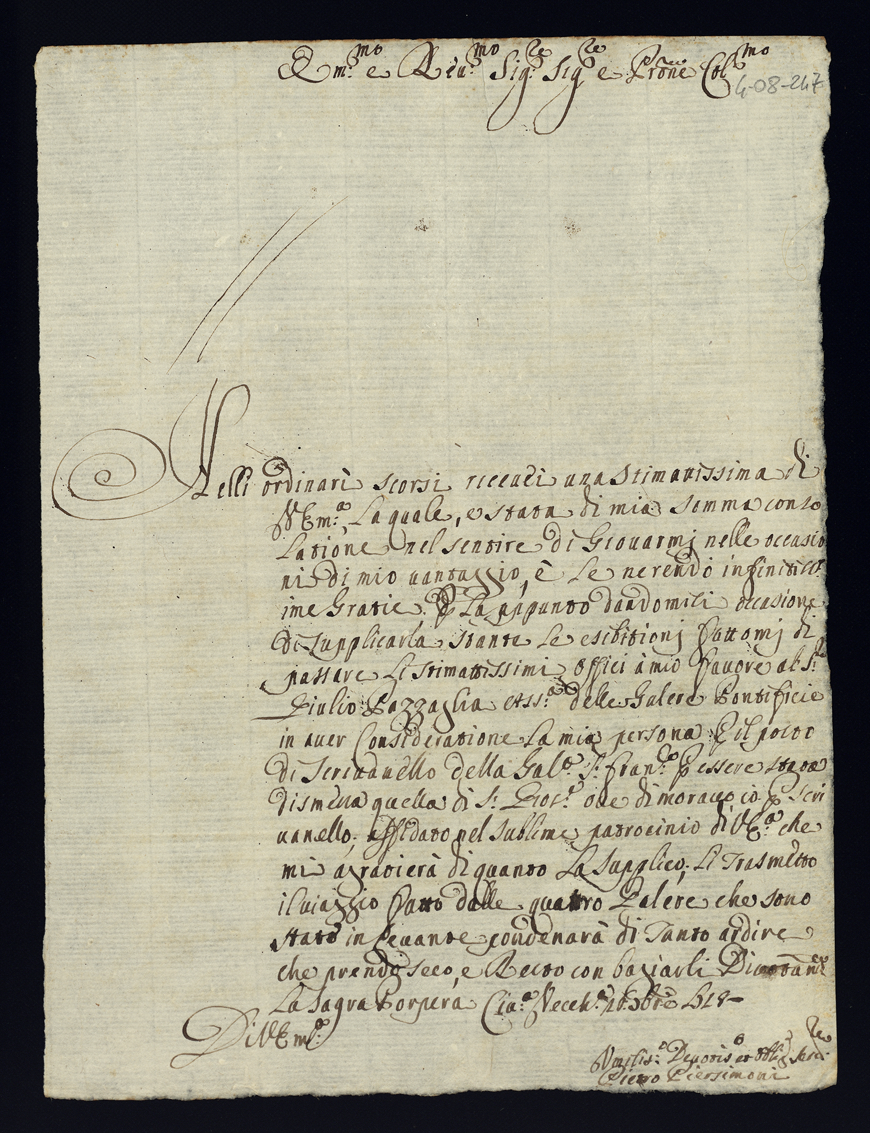 Em.mo e Reu.mo Sig.re Sig.re e Prõne Col.mo
4-08-247
Nelli ordinari scorsi riceuei una Stimatissima di
VEm.a, La quale, e stata di mia somma conso
Latione nel sentire di Giouarmj nelle occasio
ni di mio uantaggio, è Le ne rendo infinitiss.
ime Gratie. P La appunto dandomi occasione
di supplicarla stante Le esibitionj fattomj di
passare Li stimattissimi offici à mio fauore al S.r
Giulio Pazzaglia Ass.a delle Galere Pontificie
in auer Consideratione La mia persona P il posto
di Scriuanello della Gal.a S. Fran.o P essere stata
dismessa quella di S. oue dimorauo io P Scri
uanello, affidato nel sublime patrocinio di VE.a che
mi agratierà di quanto La Supplico, Li Trasmetto
il uiaggio fatto dalle quattro Galere che sono
state in Leuante condenarà di Tanto ardire
che prendo seco, e Resto con baciarli
La Sagra Porpera Ciu.a Vecch.a 18
Di VEm.a
Vmilis.o Deuotis.o et obblig. Ser.re
Pietro Piersimoni